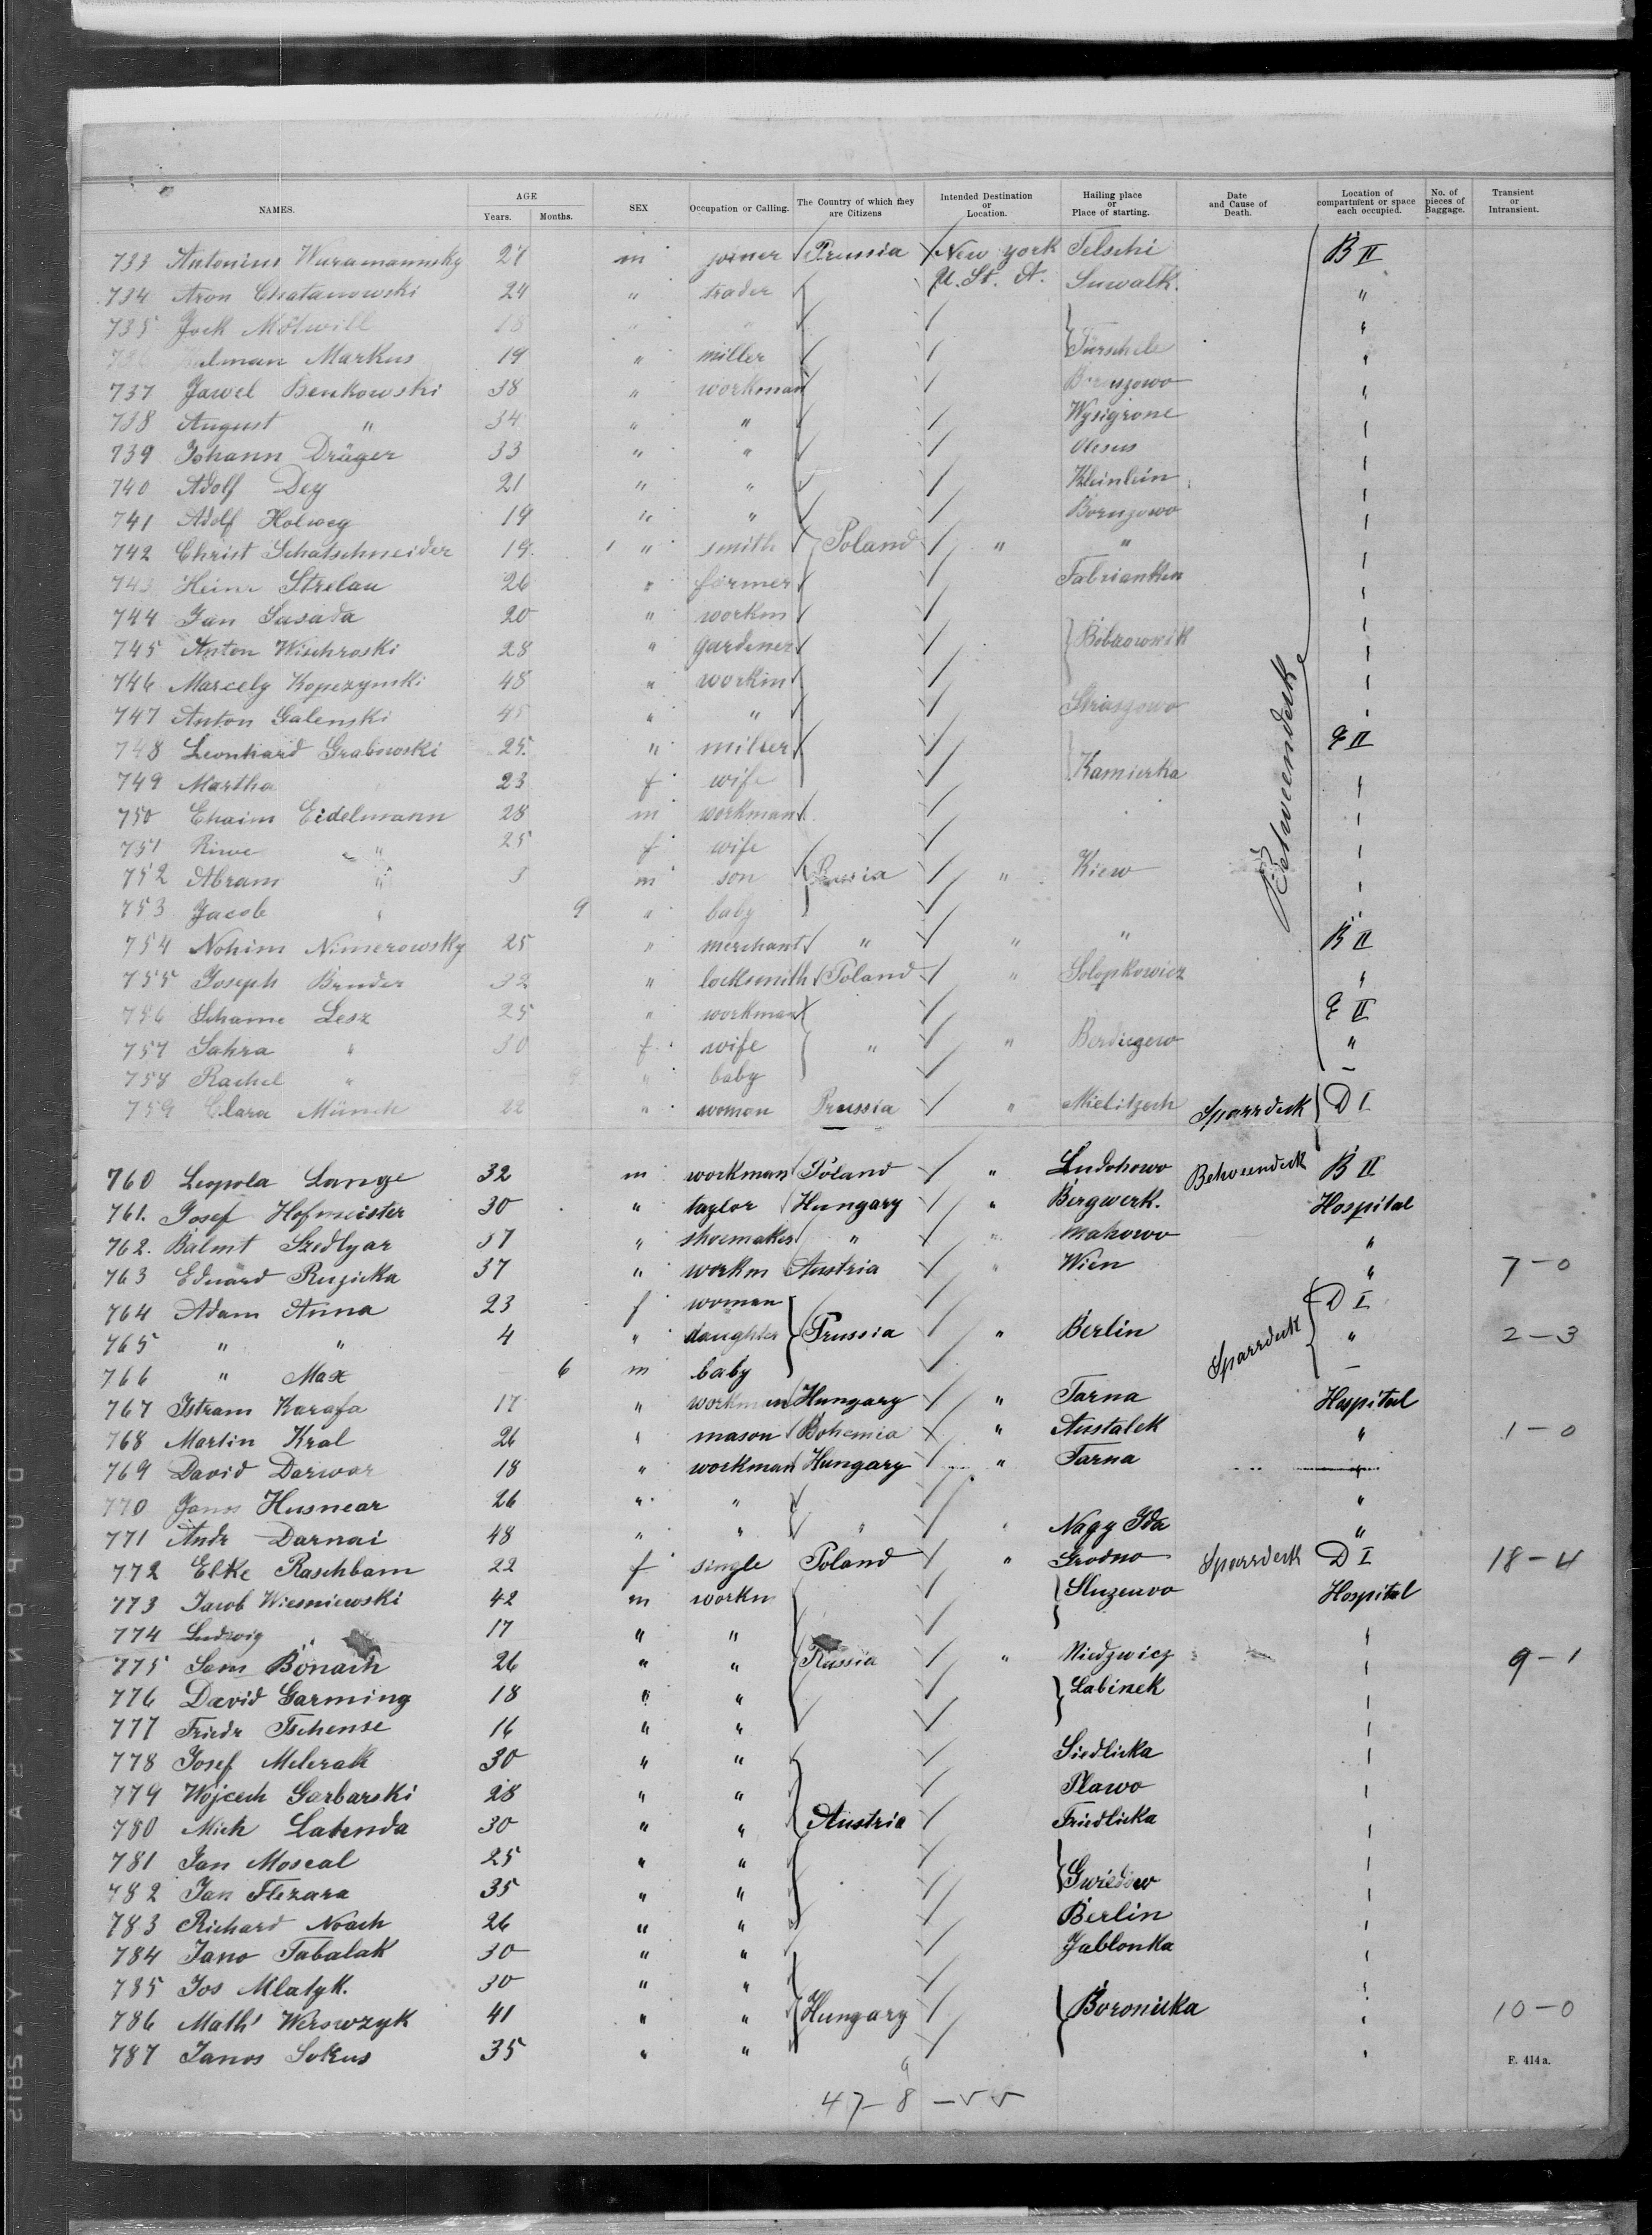 NAMES. AGE Years. Months. SEX Occupation or Calling. The Country of which they are Citizens Intended Destination or Location. Hailing place or Place of starting. Date and Cause of Death. Location of compartment or space each occupied. No. of pieces of Baggage. Transient or Intransient.
733 Antonius Wuramannsky 27 m joiner Prussia New York Telschi B II
734 Aron Chatanowski 24 " trader U. St. A. Suwalk. "
735 Jock Motwill 18 " " "
Markus 19 " miller Turschele "
737 Jawel Benkowski 38 " workman "
738 August " 34 " " Wysigrone
739 Johann Dräger 33 " "
740 Adolf Dey 21 " " Kleinlein
741 Adolf Holweg 19 " " Bornzowo
742 Christ Schatschneider 19 " smith Poland " "
743 Heinr Strelau 26 " farmer Fabrianken
744 Jan Sasada 20 " workm
745 Anton Wischroski 28 " gardener Bobrownik
746 Marcely Kopezynski 48 " workm
747 Anton Galenski 45 " " Straszowo
748 Leonhard Grabowski 25 " miller E II
749 Martha 23 f wife Kamierka
750 Chaim Eidelmann 28 m workman
751 Riwe " 25 f wife
752 Abram " 3 m son Russia " Kiew
753 Jacob " 9 " baby
Betweendeck
754 Nohim Nimerowsky 25 " merchant " " " B II
755 Joseph Bruder 32 " locksmith Poland " Solopkowicz "
756 Schame Lesz 25 " workman E II
757 Sahra " 30 f wife " " Berdiczew "
758 Rachel " — 9 " baby —
759 Clara Münch 22 " woman Prussia " Mielitzsch Sparrdeck D I
760 Leopola Lange 32 m workman Poland " Ludohowo Betweendeck B II
761. Josef Hofmeister 30 " taylor Hungary " Bergwerk. Hospital
762. Balint Szedlyar 37 " shoemaker " " Mahowo "
763 Eduard Ruzicka 37 " workm Austria " Wien " 7-0
764 Adam Anna 23 f woman D I
765 " " 4 " daughter Prussia " Berlin Sparrdeck " 2-3
766 " Max — 6 m baby —
767 Istram Karafa 17 " workman Hungary " Tarna Hospital
768 Martin Kral 26 " mason Bohemia " Austalek " 1-0
769 David Darwar 18 " workman Hungary " Tarna "
770 Janos Husnear 26 " " "
771 Andr Darnai 48 " " " " Nagy Ida "
772 Elke Raschbam 22 f single Poland " Grodno Sparrdeck D I 18-4
773 Jacob Wiesniewski 42 m workm Sluzewo Hospital
774 Ludwig " 17 " "
775 Sam Bonach 26 " " Russia " Niedzwicz 9-1
776 David Garming 18 " " Labinek
777 Friedr Tschense 16 " "
778 Josef Melerak 30 " " Siedlicka
779 Wojcech Garbarski 28 " " Plawo
780 Mich Labenda 30 " " Austria Friedlicka
781 Jan Moscal 25 " "
782 Jan Flezara 35 " " Gwiedow
783 Richard Noach 26 " " Berlin
784 Jano Tabalak 30 " " Jablonka
785 Jos Mlatyk. 30 " "
786 Math' Werswzyk 41 " " Hungary Boronicka 10-0
787 Janos Sokus 35 " "
F. 414a.
47-8